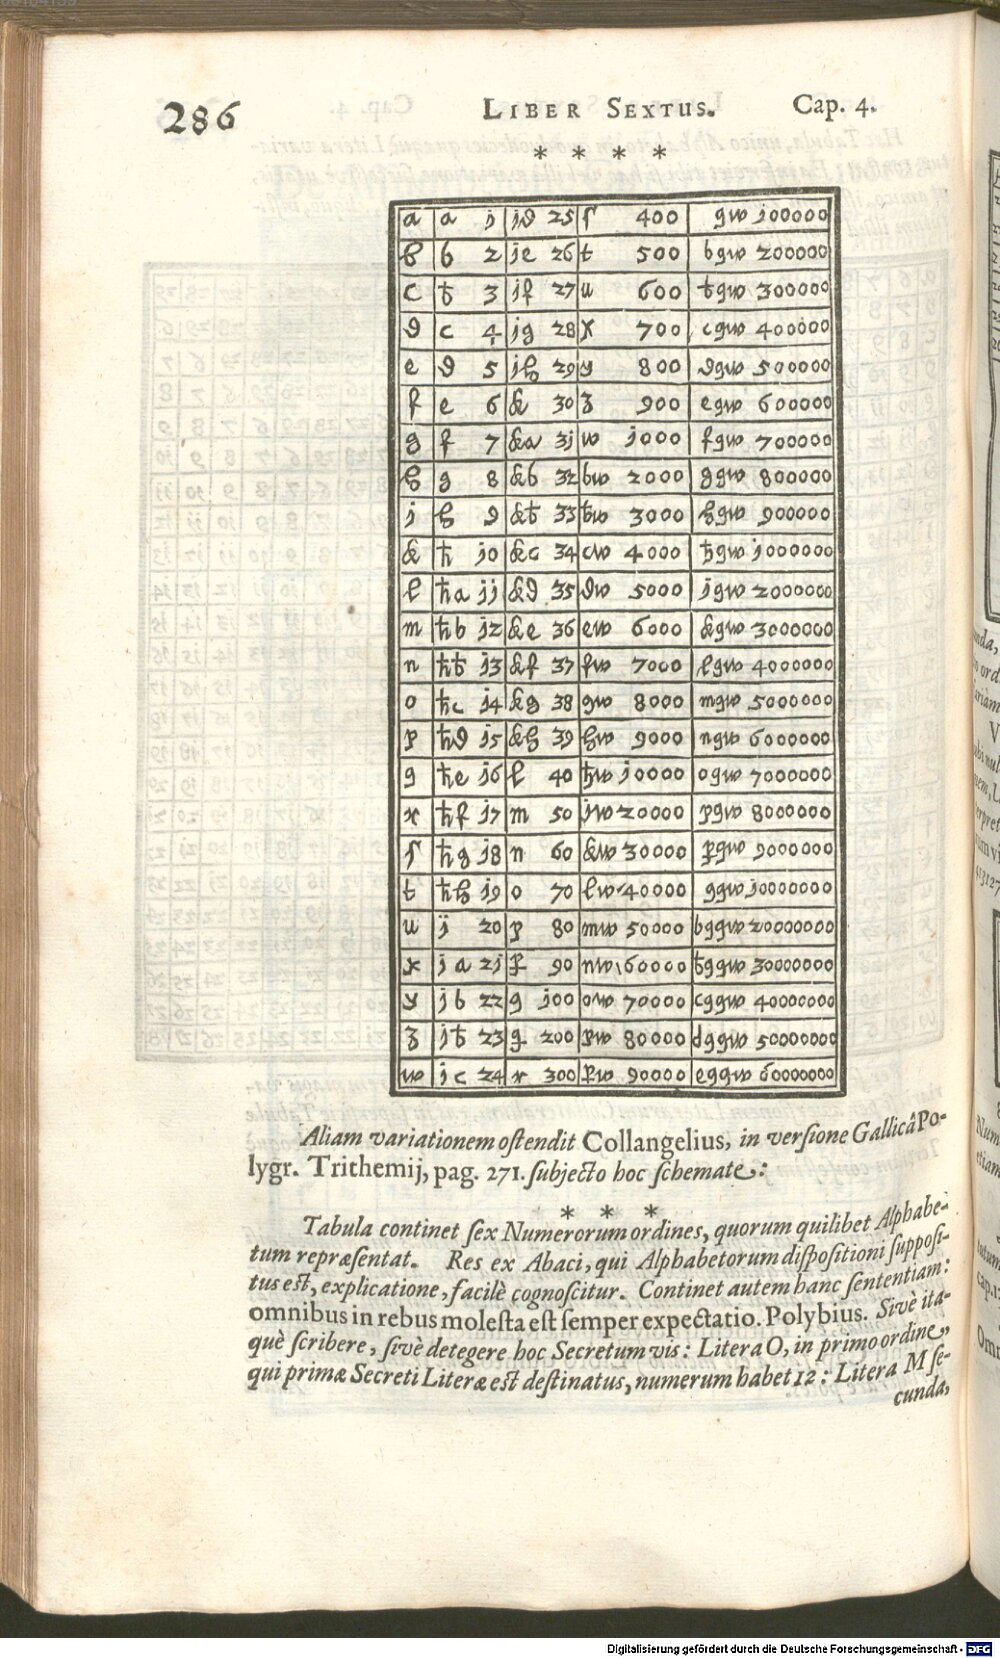 286 LIBER SEXTUS. Cap. 4.
* * * *
a a j jd 25 ſ 400 gw j00000
b b 2 je 26 t 500 bgw 200000
c ƀ 3 jf 27 u 600 ƀgw 300000
d c 4 jg 28 x 700 cgw 400000
e d 5 jh 29 y 800 dgw 500000
f e 6 & 30 z 900 egw 600000
g f 7 &a 3j w j000 fgw 700000
h g 8 &b 32 bw 2000 ggw 800000
j h 9 &ƀ 33 ƀw 3000 hgw 900000
& ħ j0 &c 34 cw 4000 ħgw j000000
l ħa jj &d 35 dw 5000 jgw 2000000
m ħb j2 &e 36 ew 6000 &gw 3000000
n ħƀ j3 &f 37 fw 7000 lgw 4000000
o ħc j4 &g 38 gw 8000 mgw 5000000
p ħd j5 &h 39 hw 9000 ngw 6000000
q ħe j6 l 40 ħw j0000 ogw 7000000
r ħf j7 m 50 jw 20000 pgw 8000000
ſ ħg j8 n 60 &w 30000 ꝑgw 9000000
t ħh j9 o 70 lw 40000 ggw j0000000
u j 20 p 80 mw 50000 bggw 20000000
x ja 2j ꝑ 90 nw 60000 ƀggw 30000000
y jb 22 g j00 ow 70000 cggw 40000000
z jƀ 23 g 200 pw 80000 dggw 50000000
w jc 24 r 300 ꝑw 90000 eggw 60000000
Aliam variationem oſtendit Collangelius, in verſione Gallicâ Po-
lygr. Trithemij, pag. 271. ſubjecto hoc ſchemate:
* * *
Tabula continet ſex Numerorum ordines, quorum quilibet Alphabe-
tum repræſentat. Res ex Abaci, qui Alphabetorum diſpoſitioni ſuppoſi-
tus eſt, explicatione, facilè cognoſcitur. Continet autem hanc ſententiam:
omnibus in rebus moleſta eſt ſemper expectatio. Polybius. Sivè ita-
què ſcribere, ſivè detegere hoc Secretum vis: Litera O, in primo ordine,
qui primæ Secreti Literæ eſt deſtinatus, numerum habet 12: Litera M ſe-
cunda,
Digitalisierung gefördert durch die Deutsche Forschungsgemeinschaft - DFG